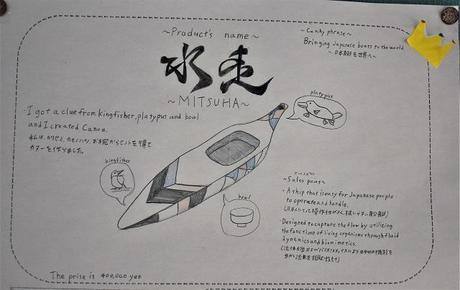 ~Product's name~
水走
~MITSUHA~
~Catchy phrase~
Bringing Japanese boats to the world
~日本船を世界へ~
I got a clue from kingfisher, platypus and bowl
and I created Canoe.
私は、カワセミ、カモノハシ、お椀からヒントを得て
カヌーを作りました。
platypus
kingfisher
bowl
~Sales point~
・A ship that is easy for Japanese people
to operate and handle.
・Designed to capture the flow by utilizing
the functions of living organisms through fluid
dynamics and biomimetics.
The prize is 400,000 yen